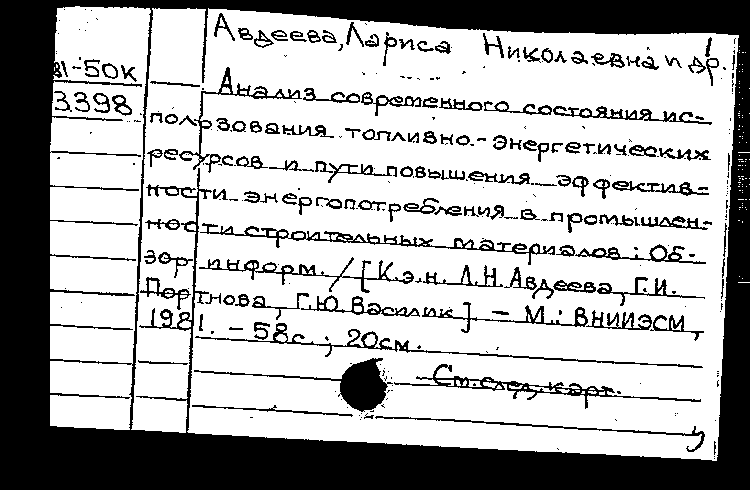 Авдеева, Лариса Николаевна и др.
81-50К
3398
Анализ современного состояния ис-
пользования топливно-энергетических
ресурсов и пути повышения эффектив-
ности энергопотребления в промышлен-
ности строительных материалов : Об-
зор информ. / [К.э.н. Л.Н. Авдеева, Г.И.
Портнова, Г.Ю. Василик]. - М.: ВНИИЭСМ,
1981. - 58с. ; 20см.
См. след. карт.